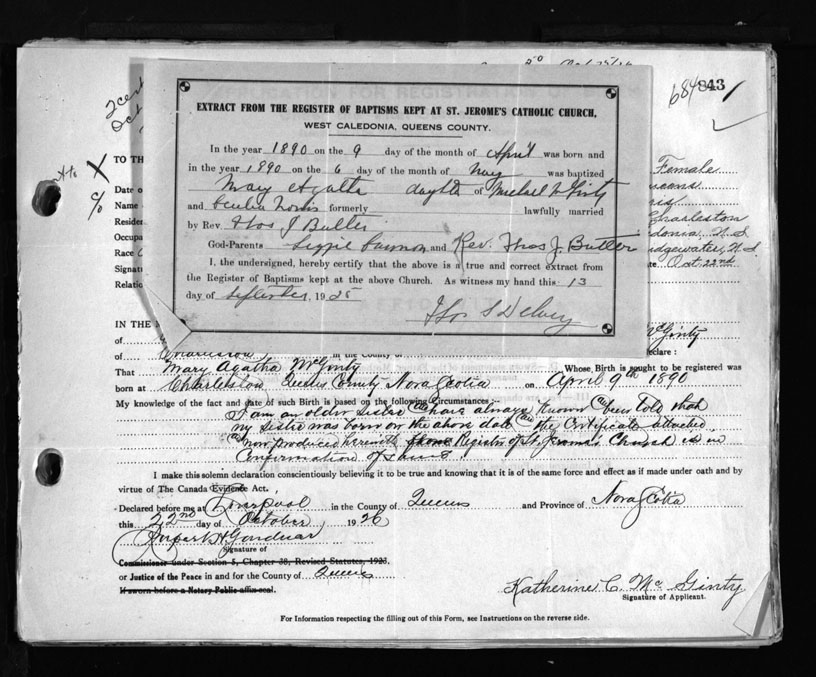 684
843
EXTRACT FROM THE REGISTER OF BAPTISMS KEPT AT ST. JEROME'S CATHOLIC CHURCH,
WEST CALEDONIA, QUEENS COUNTY.
In the year 1890 on the 9 day of the month of April was born and
in the year 1890 on the 6 day of the month of May was baptized
Mary Agatha daughter of Michael McGinty
and formerly lawfully married
by Rev. Thos J Butler
God-Parents and Rev. Thos J. Butler
I, the undersigned, hereby certify that the above is a true and correct extract from
the Register of Baptisms kept at the above Church. As witness my hand this 13
day of September, 1925
Thos S
TO TH
Female
Date o
Name
Reside
Charleston
Occupa
donia N.S.
Race
dgewater, N.S.
Signat
te Oct 22nd
Relatio
IN THE
McGinty
of
declare :
of Charleston in the County of
That Mary Agatha McGinty Whose Birth is sought to be registered was
born at Charleston Queens County Nova Scotia on April 9th 1890
My knowledge of the fact and date of such Birth is based on the following Circumstances:
I am an older sister & have always known & been told that
my sister was born on the above date & the Certificate attached
& now produced herewith from Register of St. Jerome's Church is in
Confirmation of
I make this solemn declaration conscientiously believing it to be true and knowing that it is of the same force and effect as if made under oath and by
virtue of The Canada Evidence Act.
Declared before me at Liverpool in the County of Queens and Province of Nova Scotia
this 22nd day of October, 1926
Signature of
Commissioner under Section 5, Chapter 38, Revised Statutes, 1923.
or Justice of the Peace in and for the County of Queens
If sworn before a Notary Public affix seal.
Katherine C. McGinty
Signature of Applicant.
For Information respecting the filling out of this Form, see Instructions on the reverse side.